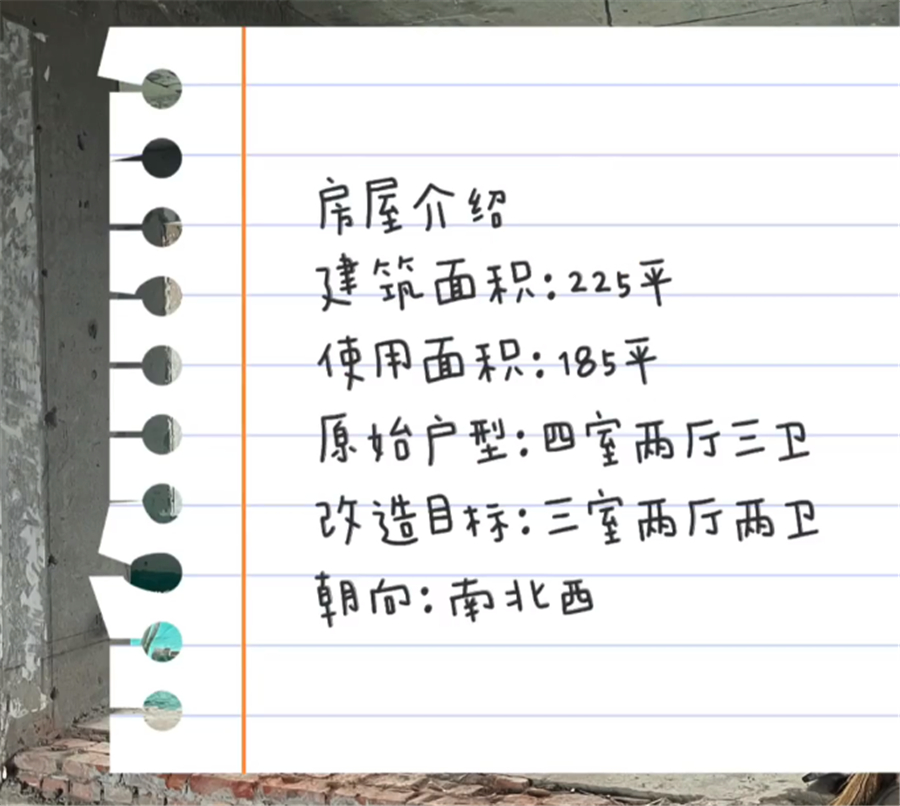 房屋介绍
建筑面积:225平
使用面积:185平
原始户型:四室两厅三卫
改造目标:三室两厅两卫
朝向:南北西